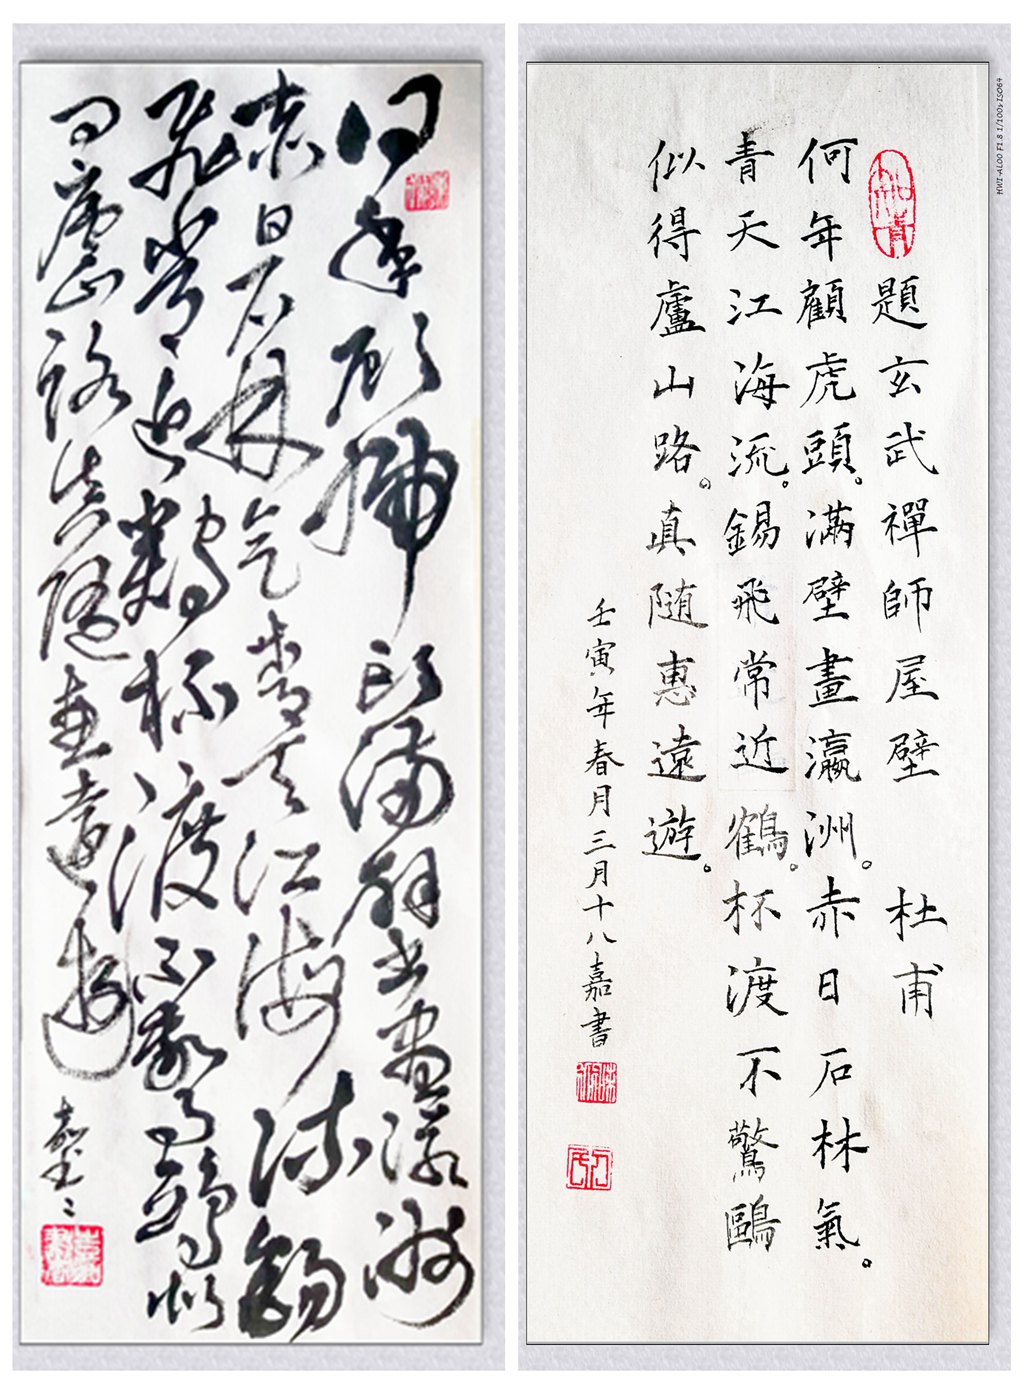 HWI-AL00 F1.8 1/100s ISO64
題玄武禪師屋壁 杜甫
何年顧虎頭。滿壁畫瀛洲。赤日石林氣。
青天江海流。錫飛常近鶴。杯渡不驚鷗
似得盧山路。真随惠遠遊。
壬寅年春月三月十八嘉書
何年顧虎頭滿壁畫瀛洲
赤日石林气青天江海流錫
飛常近鶴杯渡不驚鷗似
得廬山路真隨惠遠遊